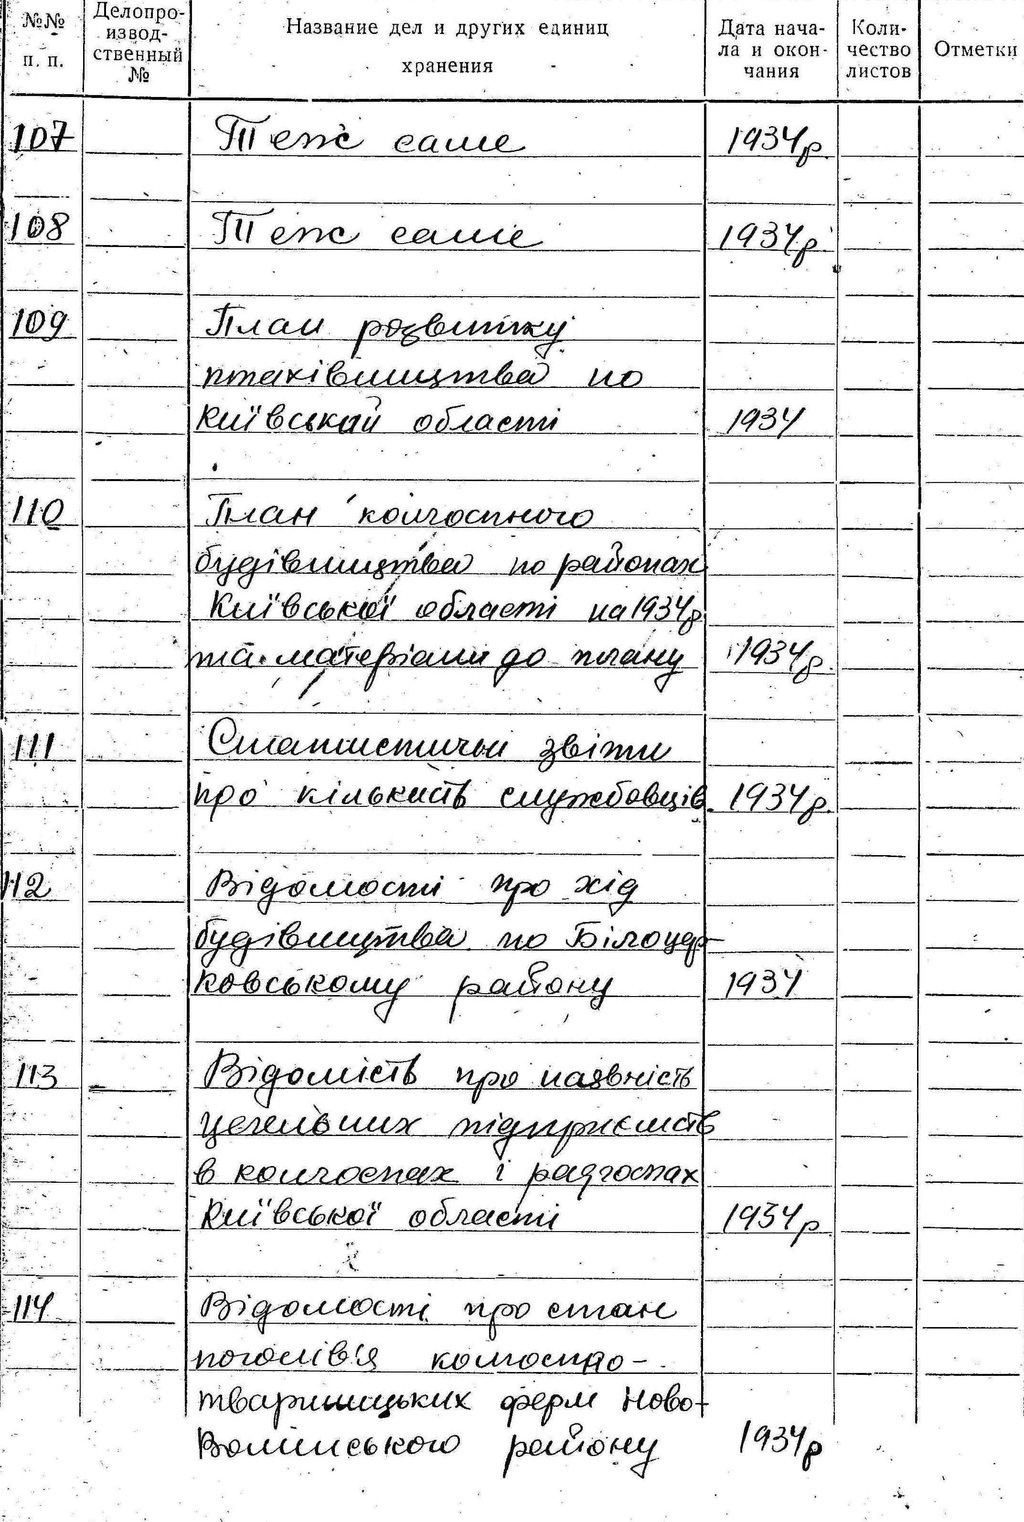 №№ п. п.
Делопро-
извод-
ственный
№
Название дел и других единиц
хранения
Дата нача-
ла и окон-
чания
Коли-
чество
листов
Отметки
107 Теж саме 1934р.
108 Теж саме 1934р.
109 План розвитку
птахівництва по
Київській області 1934
110 План колгоспного
будівництва по районах
Київської області на 1934р.
та матеріали до плану 1934р.
111 Статистичні звіти
про кількість службовців 1934р.
112 Відомості про хід
будівництва по Білоцер-
ковському району 1934
113 Відомість про наявність
цегельних підприємств
в колгоспах і радгоспах
Київської області 1934р
114 Відомості про стан
поголів'я колгоспно-
тваринницьких ферм Ново-
Волинського району 1934р